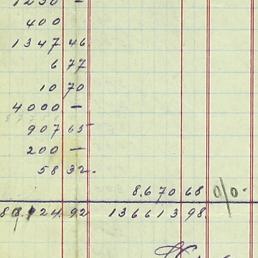 1250 —
400
1347 46
6 77
10 70
4000 —
907 65
200 —
58 32
8,670 68 0/0
24 92 136613 98